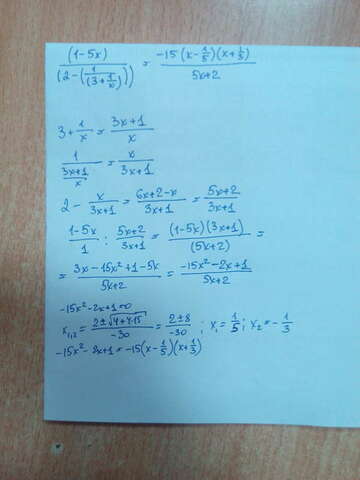 (1-5x)/(2-(1/(3+1/x))) = -15(x-1/5)(x+1/3)/5x+2
3+1/x = 3x+1/x
1/(3x+1/x) = x/3x+1
2 - x/3x+1 = 6x+2-x/3x+1 = 5x+2/3x+1
1-5x/1 : 5x+2/3x+1 = (1-5x)(3x+1)/(5x+2) =
= 3x-15x²+1-5x/5x+2 = -15x²-2x+1/5x+2
-15x²-2x+1=0
x₁,₂ = 2±√4+4·15/-30 = 2±8/-30 ; x₁=1/5; x₂=-1/3
-15x²-2x+1 = -15(x-1/5)(x+1/3)